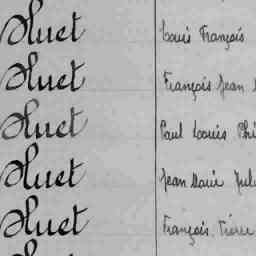 Huet Louis François
Huet François Jean
Huet Paul Louis Phi
Huet Jean Marie Jul
Huet François